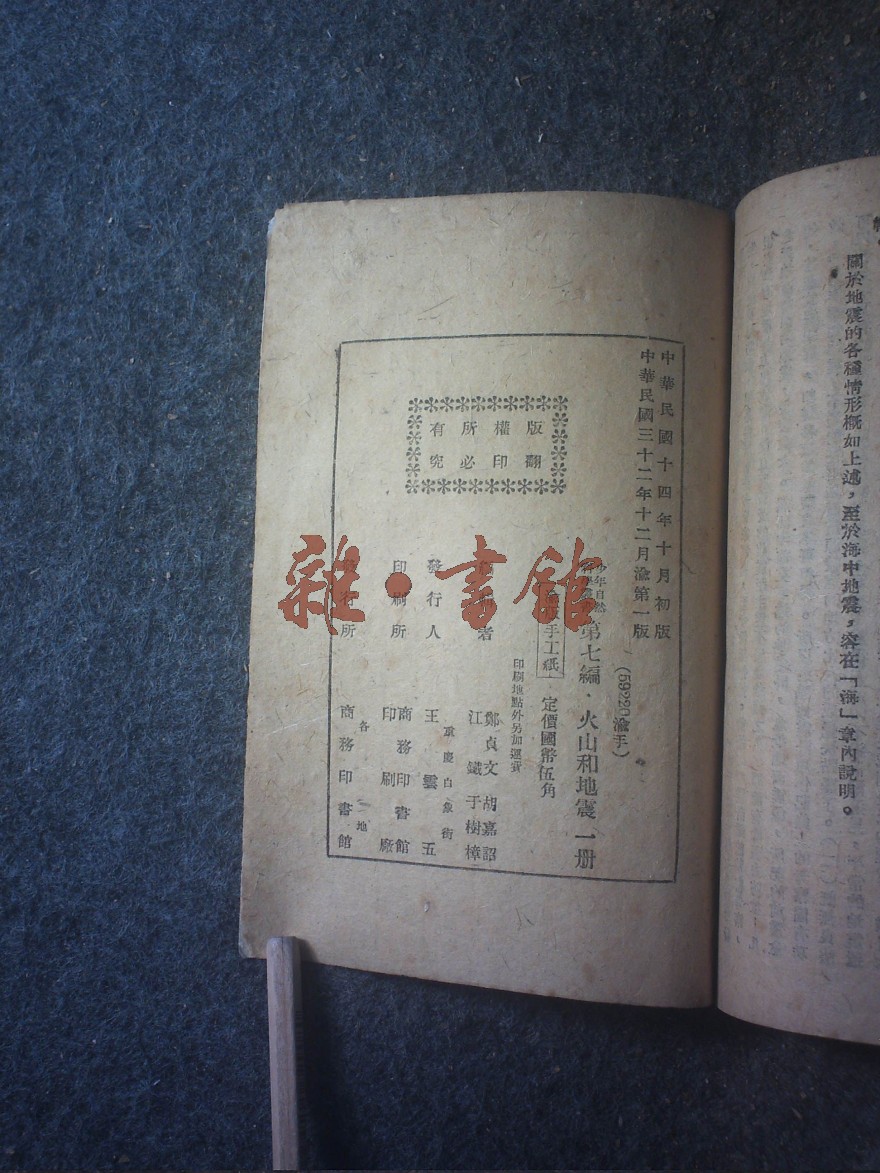 關於地震的各種情形概如上述，至於海中地震，容在「海」章內說明。
中華民國十四年十月初版
中華民國三十二年十二月渝第一版
(59220渝手)
少年自然
第七編・火山和地震一册
手工紙
定價國幣伍角
印刷地點外另加運費
者
鄭貞文 胡嘉詔
江鐵 于樹樟
發行人
重慶白象街
王雲五
印刷所
商務印書館
印刷廠
行所
各地
商務印書館
版權所有
翻印必究
雜・書館